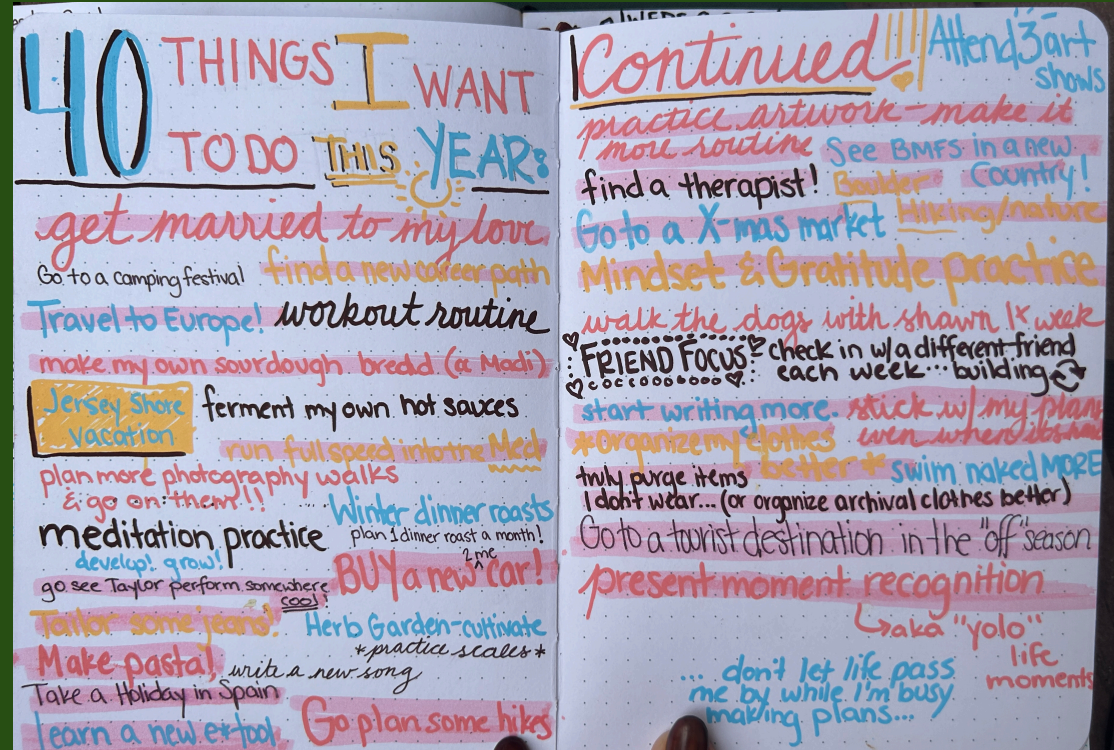 40 THINGS I WANT
TO DO THIS YEAR:
get married to my love
Go to a camping festival
find a new career path
Travel to Europe!
workout routine
make my own sourdough bread (a Madi)
Jersey Shore
vacation
ferment my own hot sauces
run full speed into the Med
plan more photography walks
& go on them!!
Winter dinner roasts
plan 1 dinner roast a month!
meditation practice
develop! grow!
BUY a new 2 me car!
go see Taylor perform somewhere
cool!
Tailor some jeans!
Herb Garden-cultivate
*practice scales*
Make pasta!
write a new song
Take a Holiday in Spain
learn a new e*tool
Go plan some hikes
Continued!!!
Attend 3 art
shows
practice artwork - make it
more routine
See BMFS in a new
Country!
find a therapist!
Boulder
Hiking/nature
Go to a X-mas market
Mindset & Gratitude practice
walk the dogs with shawn 1x week
FRIEND FOCUS
check in w/ a different friend
each week... building
start writing more.
stick w/ my plans
even when its
*Organize my clothes
better*
truly purge items
I don't wear... (or organize archival clothes better)
swim naked MORE
Go to a tourist destination in the "off" season
present moment recognition
aka "yolo"
life
moments
... don't let life pass
me by while I'm busy
making plans...